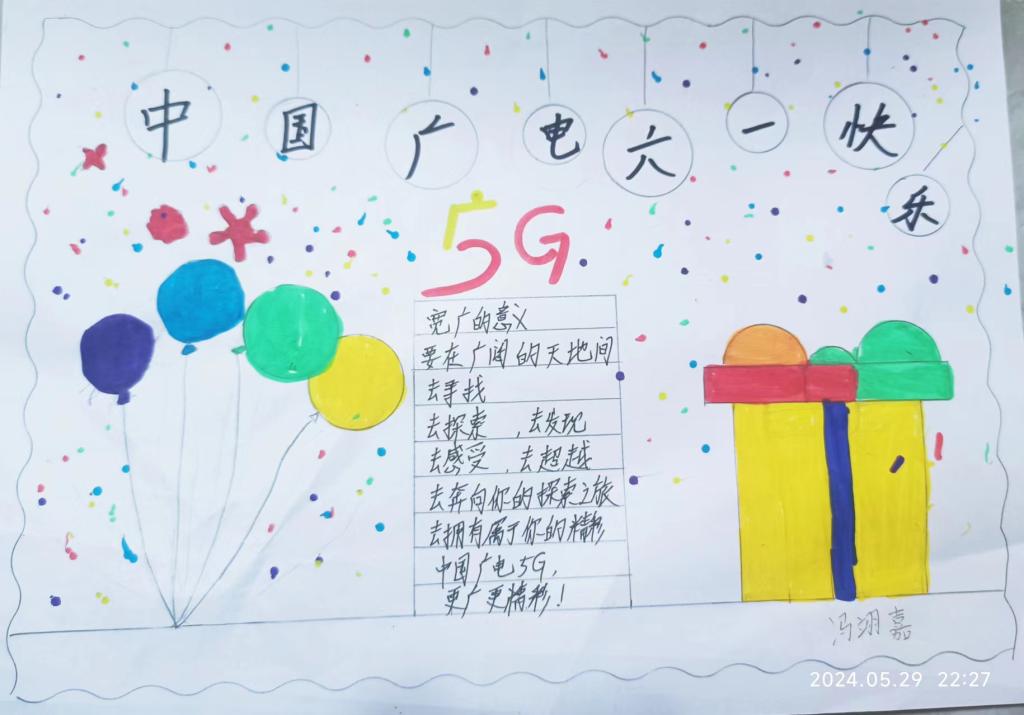 中国广电六一快乐
5G
宽广的意义
要在广阔的天地间
去寻找
去探索，去发现
去感受，去超越
去奔向你的探索之旅
去拥有属于你的精彩
中国广电5G，
更广更精彩！
冯翊嘉
2024.05.29 22:27